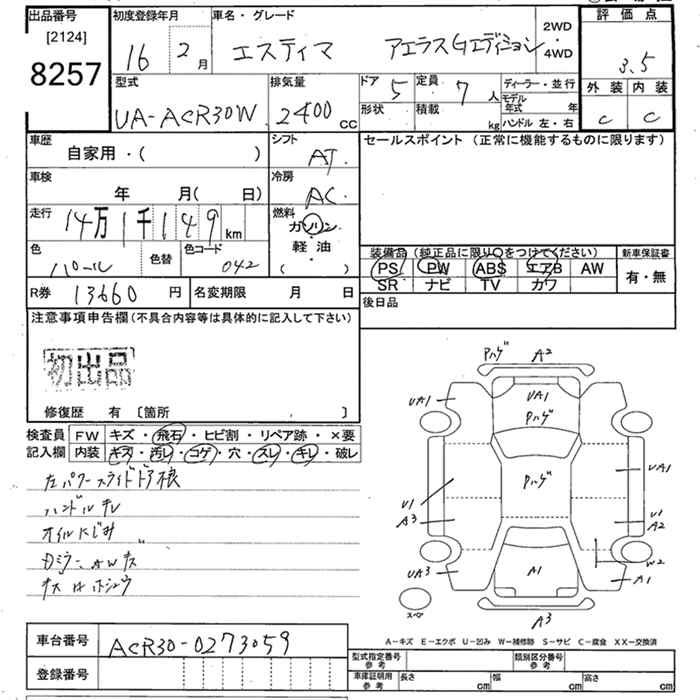 出品番号
[2124]
8257
初度登録年月
16 2月
車名・グレード
エスティマ アエラスGエディション
2WD
・
4WD
評価点
3.5
外装 内装
C C
型式
UA-ACR30W
排気量
2400 CC
ドア 5
形状
定員 7 人
積載 kg
ディーラー・並行
モデル年式 年
ハンドル 左・右
車歴
自家用・( )
シフト
AT
車検
年 月( 日)
冷房
AC
走行
14万1千149km
燃料
ガソリン
軽油
( )
色
パール
色替
色コード
042
R券 13660 円
名変期限 月 日
セールスポイント (正常に機能するものに限ります)
装備品 (純正品に限り〇をつけてください)
PS PW ABS エアB AW
SR ナビ TV カワ
新車保証書
有・無
後日品
注意事項申告欄(不具合内容等は具体的に記入して下さい)
初出品
修復歴 有 [箇所 , ]
検査員記入欄
FW キズ・飛石・ヒビ割・リペア跡・×要
内装 キズ・汚レ・コゲ・穴・スレ・キレ・破レ
左パワースライドドア
ハンドルスレ
オイルにじみ
AWキズ
Pハゲ A2
UA1 UA1
Pハゲ
Pハゲ
UA1
U1
A3
U1
A2
UA3 A1
W2
A1
スペア
A3
A-キズ E-エクボ U-凹み W-補修跡 S-サビ C-腐食 XX-交換済
車台番号 ACR30-0273059
登録番号
型式指定番号参考
類別区分番号参考
車庫証明用参考
長さ cm 幅 cm 高さ cm